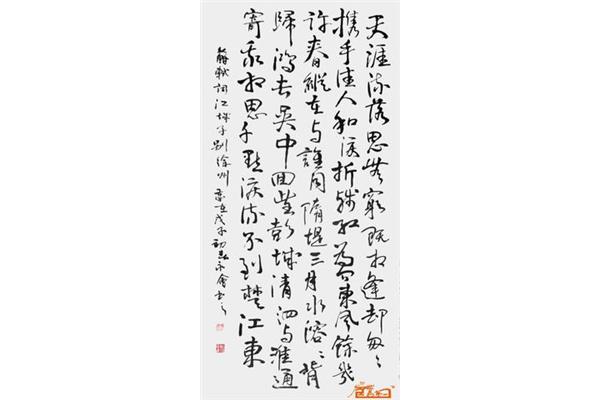 天涯流落思無窮既相逢却匆〻
携手佳人和淚折殘紅為問東風餘幾
許春縱在与誰同隋堤三月水溶〻背
歸鴻去吳中回望彭城清泗与淮通
寄我相思千點淚流不到楚江東
蘇軾詞江城子別徐州 歲在戊子初春